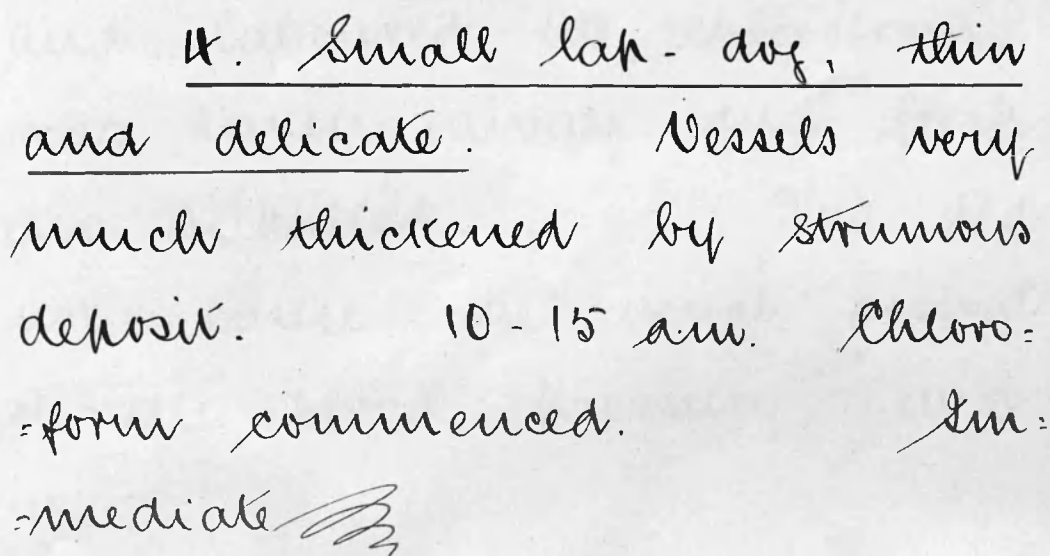 4. Small lap-dog, thin
and delicate. Vessels very
much thickened by strumous
deposit. 10-15 am. Chloro=
=form commenced. Im=
=mediate